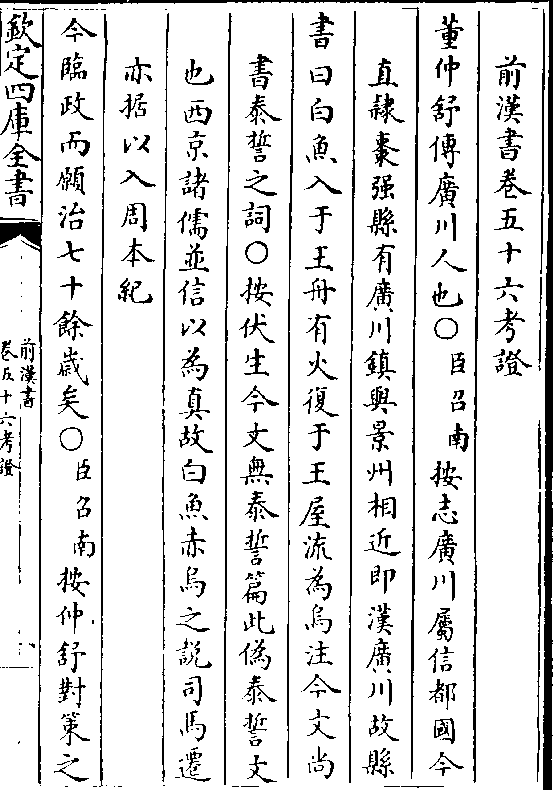 前漢書卷五十六考證
董仲舒傳廣川人也○臣召南按志廣川屬信都國今
直隸棗强縣有廣川鎮與景州相近即漢廣川故縣
書曰白魚入于王舟有火復于王屋流為烏注今文尚
書泰誓之詞○按伏生今文無泰誓篇此偽泰誓文
也西京諸儒並信以為真故白魚赤烏之說司馬遷
亦据以入周本紀
今臨政而願治七十餘歲矣○臣召南按仲舒對策之
欽定四庫全書
前漢書
卷五十六考證